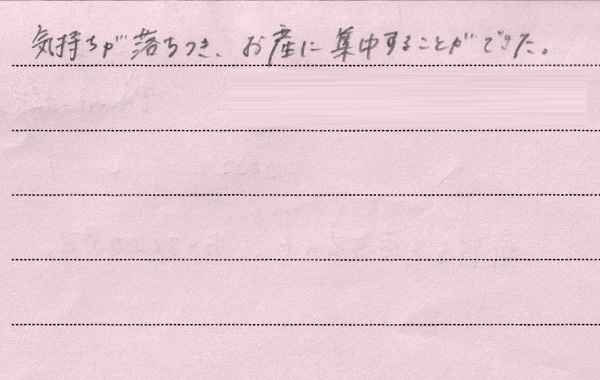 気持ちが落ちつき、お産に集中することができた。